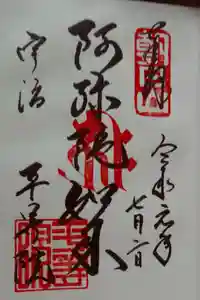 朝日山
奉拝
令和元年
七月二日
阿弥陀如来
宇治
平等院